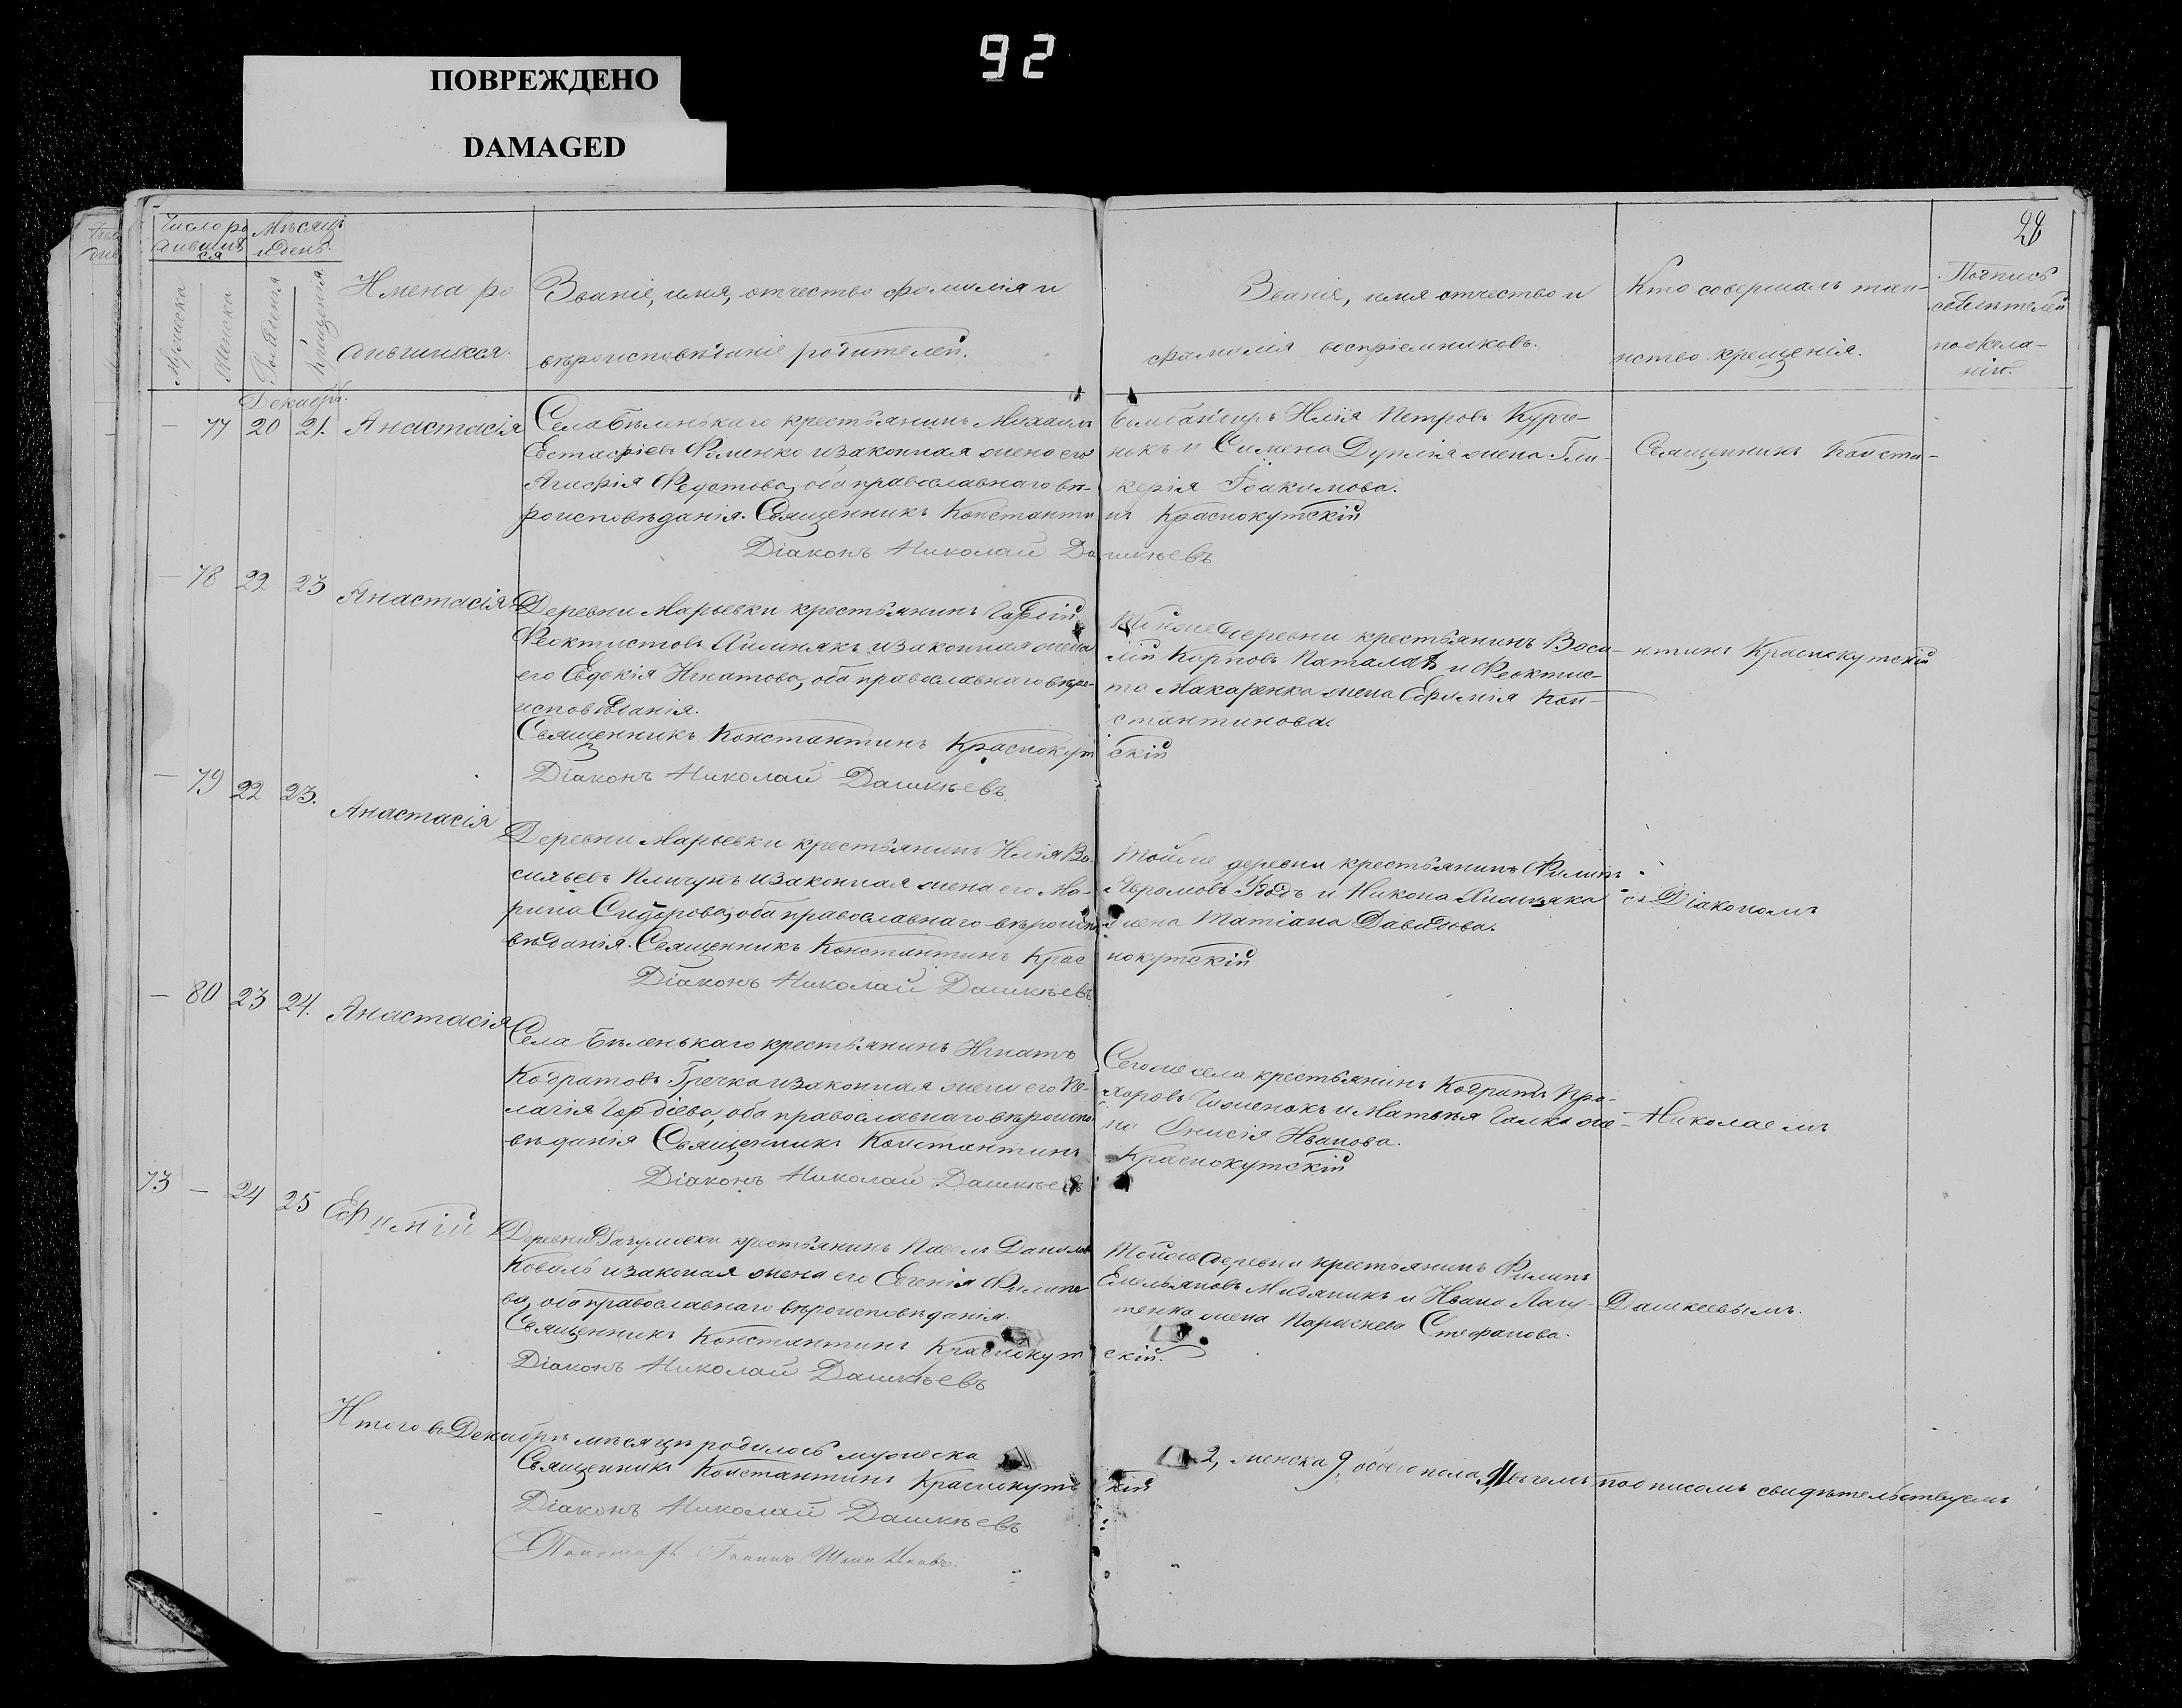 92
ПОВРЕЖДЕНО
DAMAGED
28
Число ро
дивших
ся
Мѣсяцъ
и день.
Мужеска
Женска
Рожденія
Крещенія
Имена ро
дившихся.
Званіе, имя, отчество фамилія и
вѣроисповѣданіе родителей.
Званіе, имя отчество и
фамилія воспріемниковъ.
Кто совершалъ таи-
нство крещенія.
Подпись
свидѣтелей
по жела-
нію.
Декабрь.
— 77 20 21. Анастасія
Села Бѣленькаго крестьянинъ Михаилъ
Евстафіевъ Фоменко и законная жена его
Агафія Федотова, оба православнаго вѣ-
роисповѣданія. Священникъ Константи
Діаконъ Николай Да
Илія Петровъ Курче-
нокъ и Симена жена Гли-
керія Іоакимова.
нъ Краснокутскій
шкѣевъ
СвященникъКонста-
— 78 22 23 Анастасія
Деревни Марьевки крестьянинъ
Феоктистовъ и законная жена
его Евдокія Игнатова, оба православнаго вѣро-
исповѣданія.
Священникъ Константинъ Краснокут
Діаконъ Николай Дашкѣевъ
Тойже деревни крестьянинъ Васи-
лій Карповъ и Феоктис-
та Макаренка жена Ефимія Кон-
стантинова.
скій
нтинъ Краснокутскій
— 79 22 23. Анастасія
Деревни Марьевки крестьянинъ Илія Ва-
сильевъ и законная жена его Ма-
рина Сидорова, оба православнаго вѣроиспо
вѣданія. Священникъ Константинъ Крас
Діаконъ Николай Дашкѣевъ
Тойже деревни крестьянинъ Филипъ
и Никона
жена Татіана Давидова.
нокутскій
съ Діакономъ
— 80 23 24. Анастасія
Села Бѣленькаго крестьянинъ Игнатъ
Кодратовъ Гречка и законная жена его Пе-
лагія Гордіева, оба православнаго вѣроиспо
вѣданія Священникъ Константинъ
Діаконъ Николай Дашкѣевъ
Сегоже села крестьянинъ Кодратъ Про-
хоровъ и Матвѣя Галки же-
на Онисія Иванова.
Краснокутскій
Николаемъ
73 — 24 25 Ефимій
Деревни крестьянинъ Павелъ Данилов
Коваль и законая жена его Евгенія Филипо
ва, оба православнаго вѣроисповѣданія.
Священникъ Константинъ Краснокут
Діаконъ Николай Дашкѣевъ
Тойже деревни крестьянинъ Филипъ
Емельяновъ и Ивана Лагу-
тенка жена Параскева Стефанова.
скій.
Дашкеевымъ.
Итого въ Декабрѣ мѣсяцѣ родилось мужеска
2, женска 9, обоего пола 11 въ чемъ подписомъ свидѣтельствуемъ
Священникъ Константинъ Краснокутс
кій
Діаконъ Николай Дашкѣевъ
Пономарь Іоаннъ